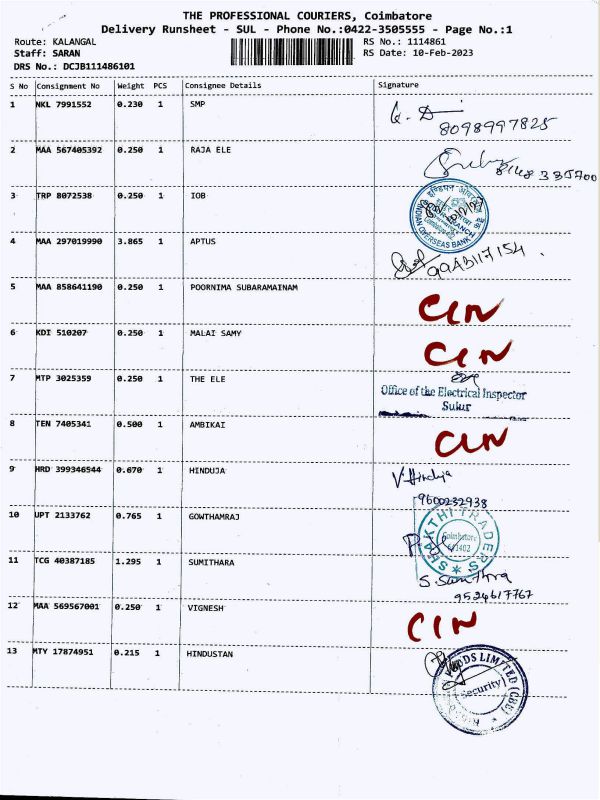 THE PROFESSIONAL COURIERS, Coimbatore
Delivery Runsheet - SUL - Phone No.:0422-3505555 - Page No.:1
Route: KALANGAL RS No.: 1114861
Staff: SARAN RS Date: 10-Feb-2023
DRS No.: DCJB111486101
S No Consignment No Weight PCS Consignee Details Signature
1 NKL 7991552 0.230 1 SMP
8098997825
2 MAA 567405392 0.250 1 RAJA ELE
8148 335700
3 TRP 8072538 0.250 1 IOB
INDIAN OVERSEAS BANK
4 MAA 297019990 3.865 1 APTUS
9943117154
5 MAA 858641190 0.250 1 POORNIMA SUBARAMAINAM
CIN
6 KDI 510207 0.250 1 MALAI SAMY
CIN
7 MTP 3025359 0.250 1 THE ELE
Office of the Electrical Inspector
Sulur
8 TEN 7405341 0.500 1 AMBIKAI
CIN
9 HRD 399346544 0.670 1 HINDUJA
V. Hinduja
9600232938
10 UPT 2133762 0.765 1 GOWTHAMRAJ
SHAKTHI TRADERS
Coimbatore
11 TCG 40387185 1.295 1 SUMITHARA
S. Sumithra
9524617767
12 MAA 569567001 0.250 1 VIGNESH
CIN
13 MTY 17874951 0.215 1 HINDUSTAN
FOODS LIMITED (CBE)
Security